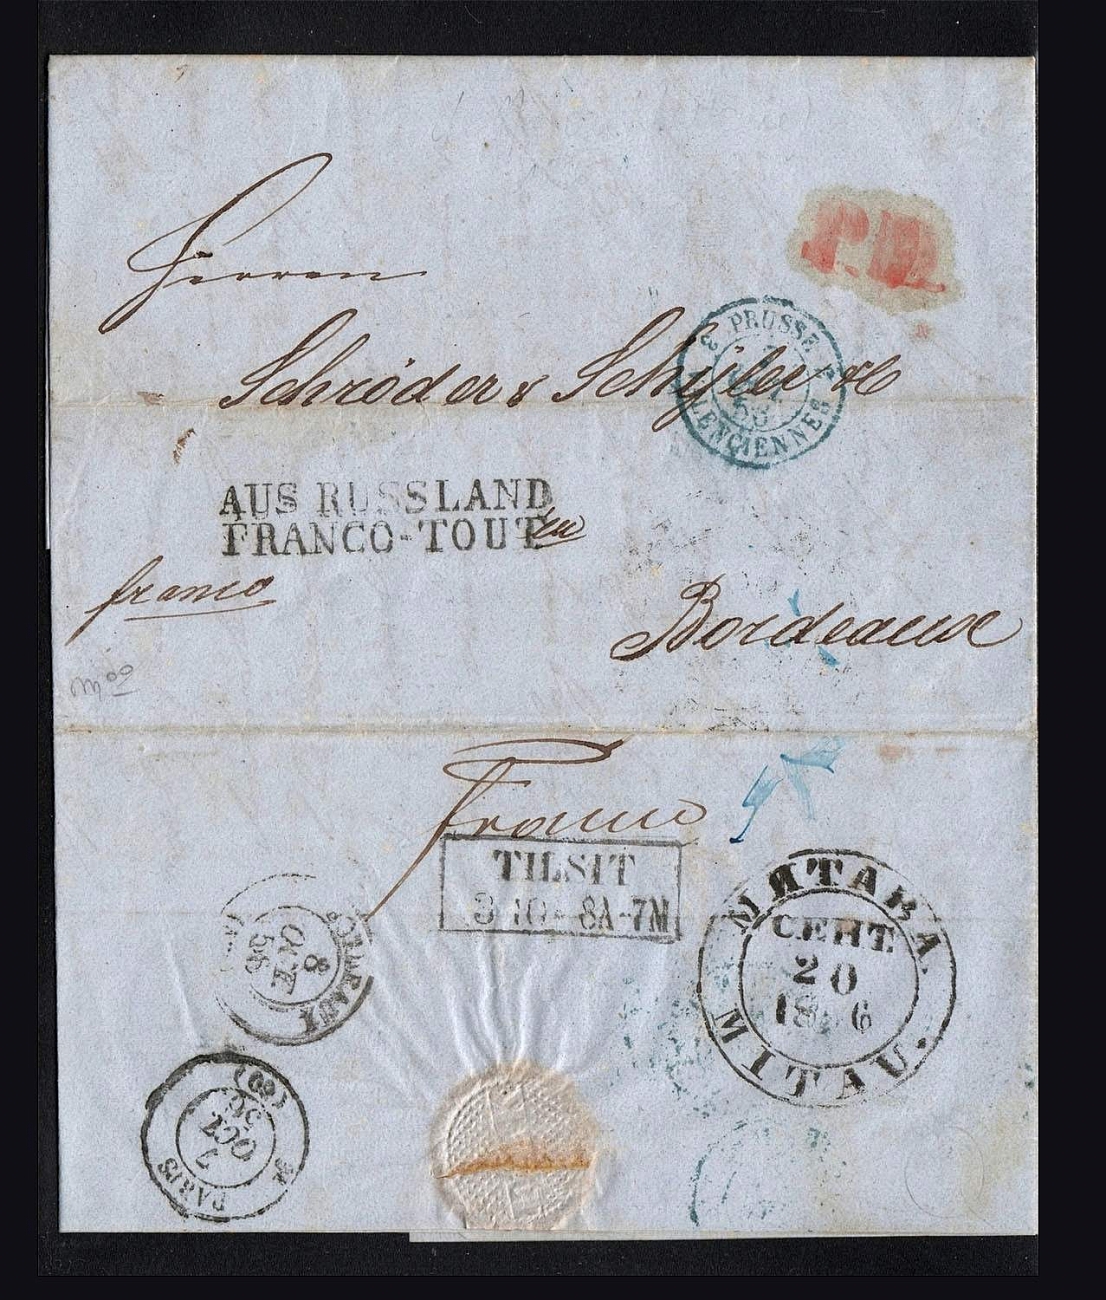 P.D.
Herren
Schröder & Schÿler & C
3 PRUSSE 3
LENCIENNES
AUS RUSSLAND
FRANCO-TOUT
in
franco
Bordeaux
France
TILSIT
3 10 - 8A-7M
МИТАВА.
СЕНТ.
20
18 6
MITAU.
8
OCT
56
PARIS
7
OCT
56
(60)